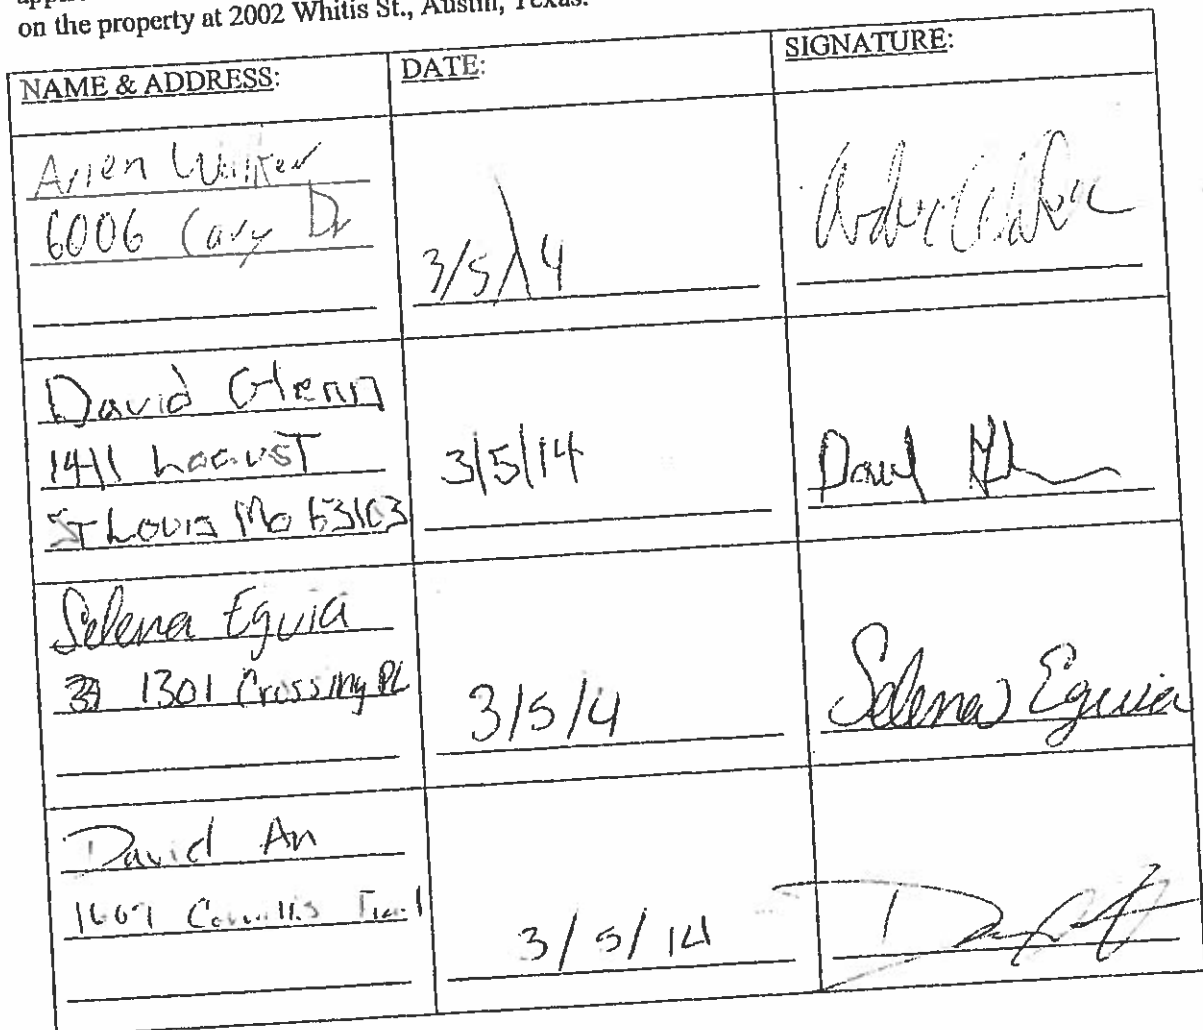 on the property at 2002 Whitis St., Austin, Texas.
NAME & ADDRESS: DATE: SIGNATURE:
6006 Cary Dr
3/5/14
David Glenn
1411 Locust
St Louis Mo 63103
3/5/14
Selena Eguia
1301 Crossing PL
3/5/14
Selena Eguia
David An
Trail
3/5/14